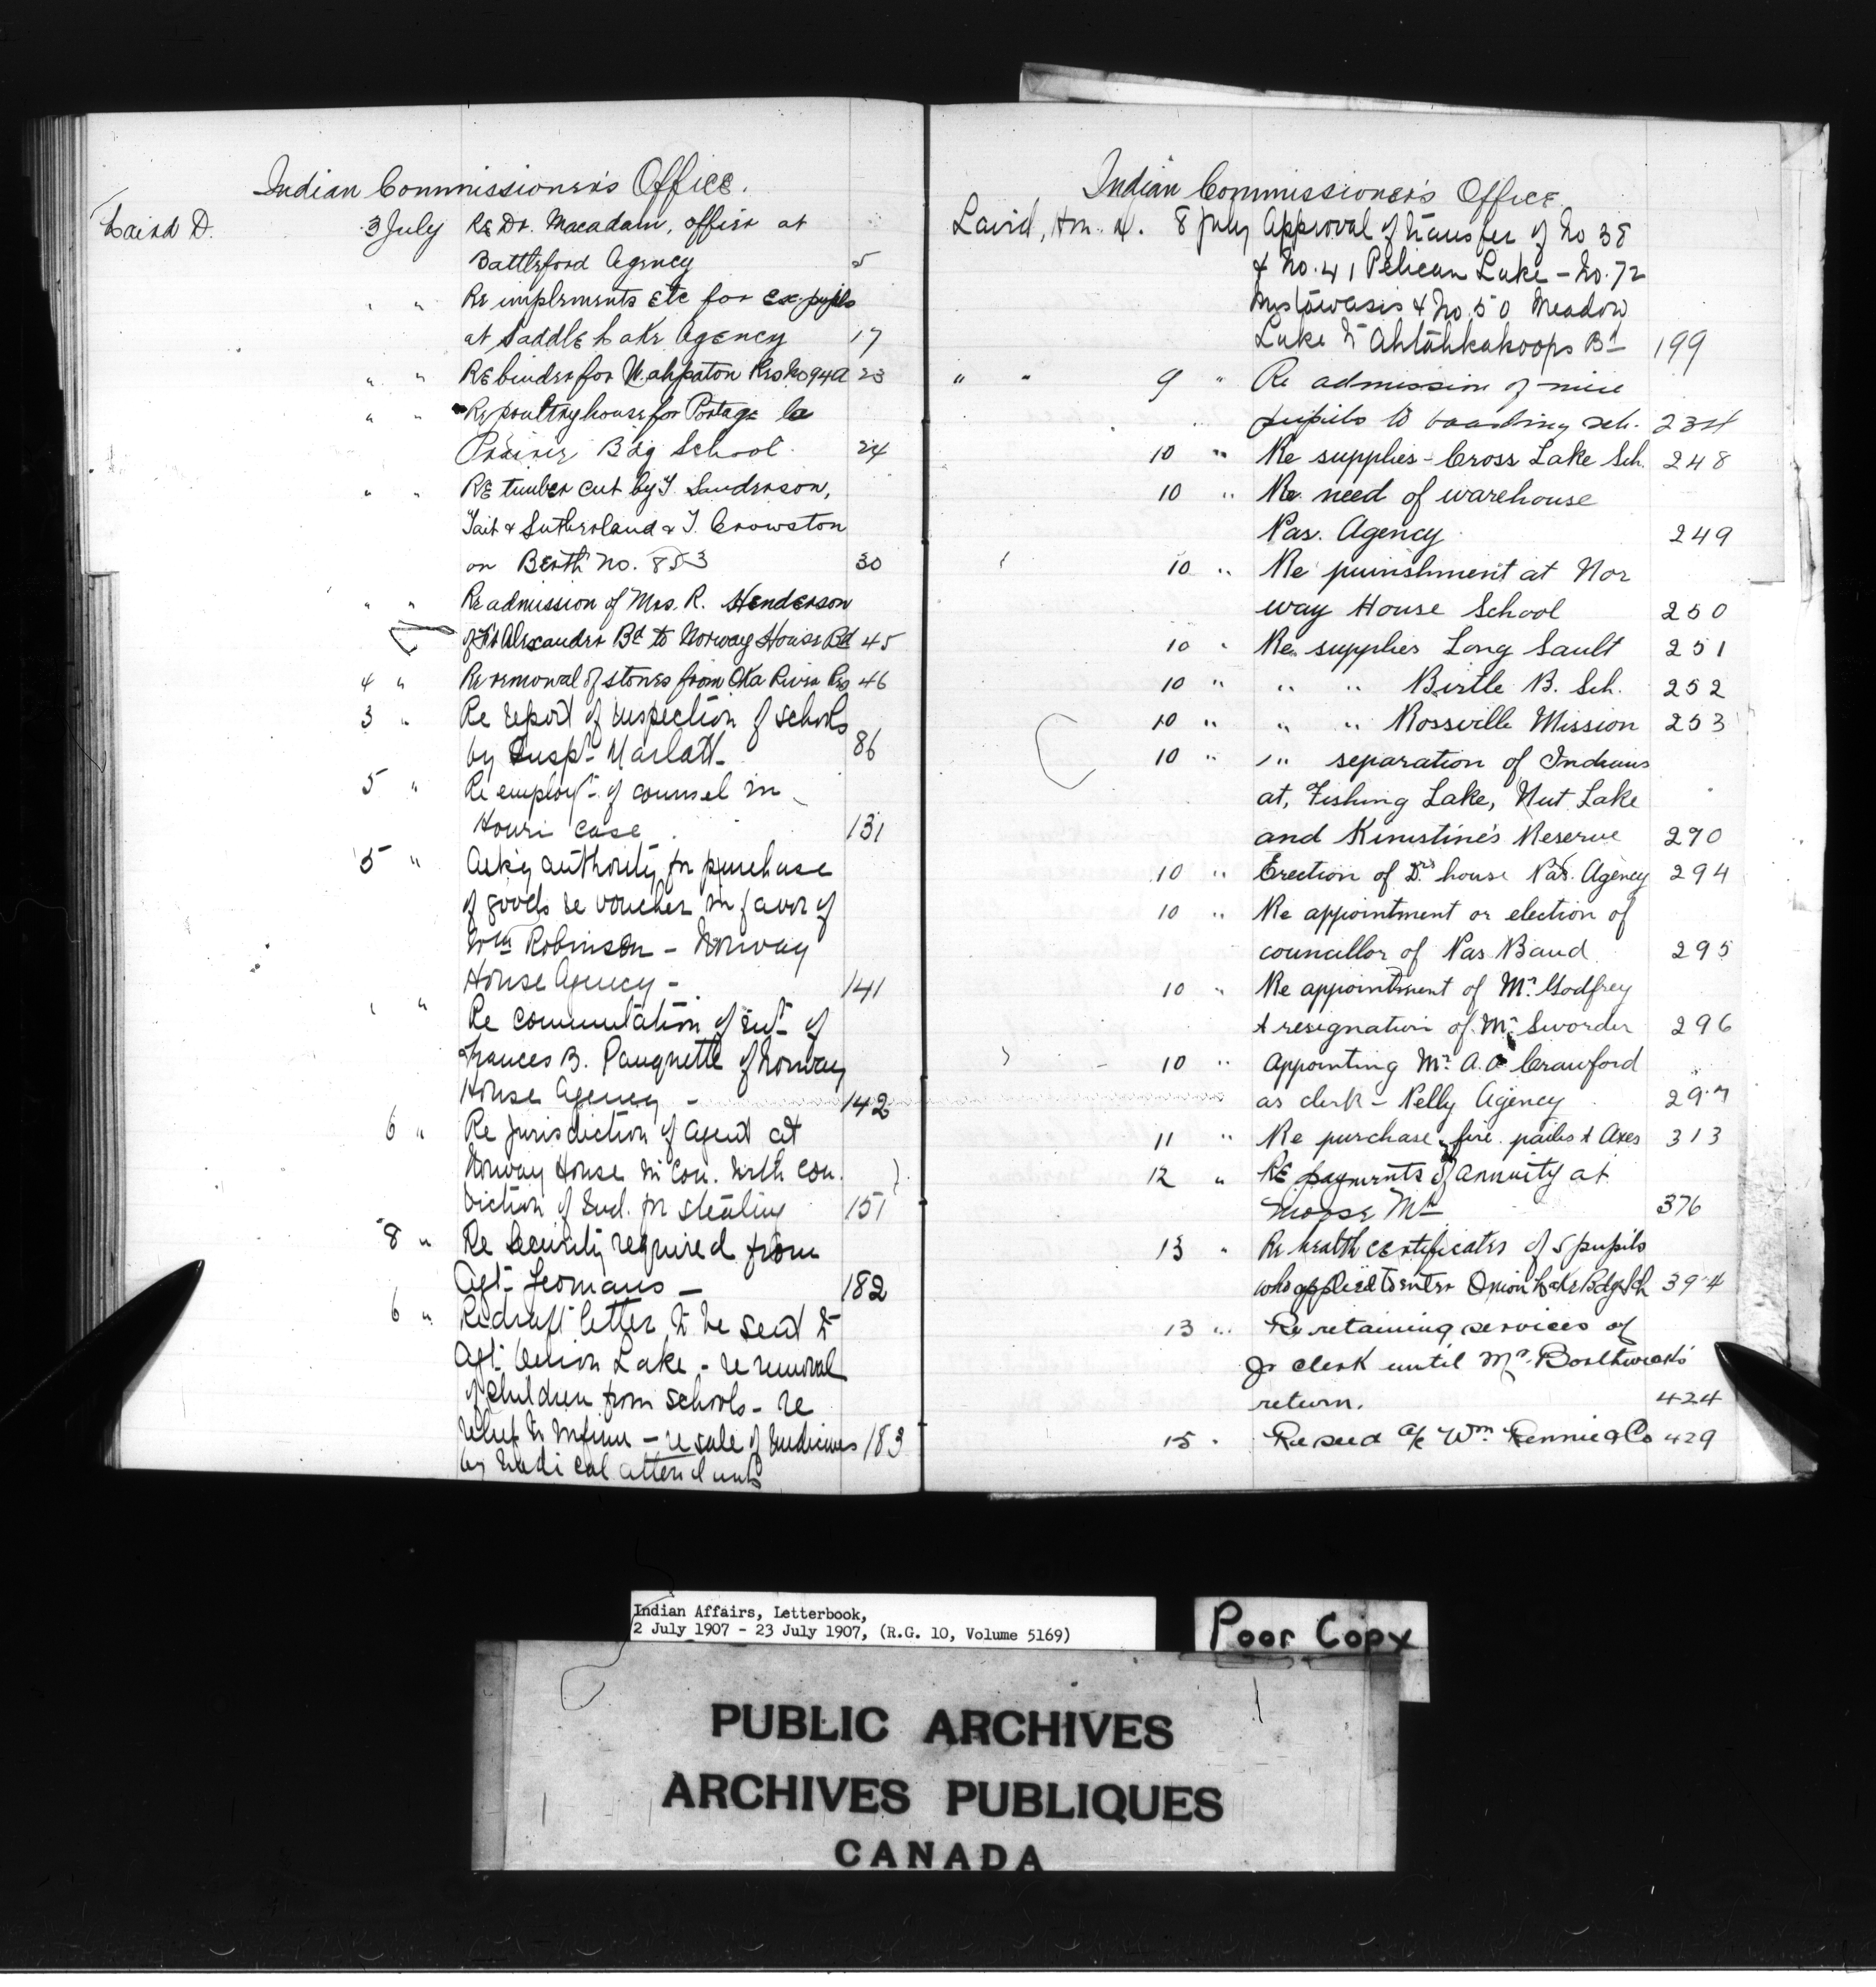 Indian Commissioner's Office.
Laird D. 3 July Re Dr. Macadam, officer at
Battleford Agency 5
" " Re implements etc for ex-pupils
at Saddle Lake Agency 17
" " Re binder for Wahpaton Res. No 94A 23
" " Re poultry house for Portage la
Prairie Bdg School. 24
" " Re timber cut by J. Sanderson,
Tait & Sutherland & T. Crowston
on Berth no. 853 30
" " Re admission of Mrs. R. Henderson
of Ft Alexander Bd to Norway House Bd 45
4 " Re removal of stones from Oka River Res 46
3 " Re report of inspection of schools
by Inspr Marlatt 86
5 " Re employt of counsel in
Houri case. 131
5 " Ask'g authority for purchase
of goods re voucher in favor of
Wm Robinson - Norway
House Agency - 141
" " Re commutation of int of
Frances B. Pauquette of Norway
House Agency - 142
6 " Re jurisdiction of agent at
Norway House in con. with con-
viction of Ind. for stealing 151
8 " Re Security required from
Agt. Yeomans - 182
6 " Re draft letter to be sent to
Agt. Onion Lake - re removal
of children from schools - re
relief to Infirm - re sale of medicines 183
by medical attendants
Indian Commissioner's Office.
Laird, Hn. D. 8 July Approval of transfer of No 38
& No. 41 Pelican Lake - No. 72
Mistawasis & No. 50 Meadow
Lake to Ahtahkakoops Bd 199
" " 9 " Re admission of nine
pupils to boarding sch. 234
10 " Re supplies - Cross Lake Sch. 248
10 " Re need of warehouse
Pas. Agency 249
10 " Re punishment at Nor
way House School 250
10 " Re supplies Long Sault 251
10 " " " Birtle B. Sch. 252
10 " " " Rossville Mission 253
10 " " separation of Indians
at, Fishing Lake, Nut Lake
and Kinistine's Reserve 290
10 " Erection of Drs house Pas. Agency 294
10 " Re appointment or election of
councillor of Pas Band 295
10 " Re appointment of Mr. Godfrey
& resignation of Mr. Sworder 296
10 " Appointing Mr. A. A. Crawford
as clerk - Pelly Agency 297
11 " Re purchase of fire pails & Axes 313
12 " Re payments of annuity at
Moose Mn 376
13 " Re health certificates of 5 pupils
who applied to enter Onion Lake Bdg Sch 394
13 " Re retaining services of
Jr clerk until Mr. Borthwick's
return. 424
15 " Re seed a/c Wm. Rennie & Co 429
Indian Affairs, Letterbook,
2 July 1907 - 23 July 1907, (R.G. 10, Volume 5169)
Poor Copy
PUBLIC ARCHIVES
ARCHIVES PUBLIQUES
CANADA